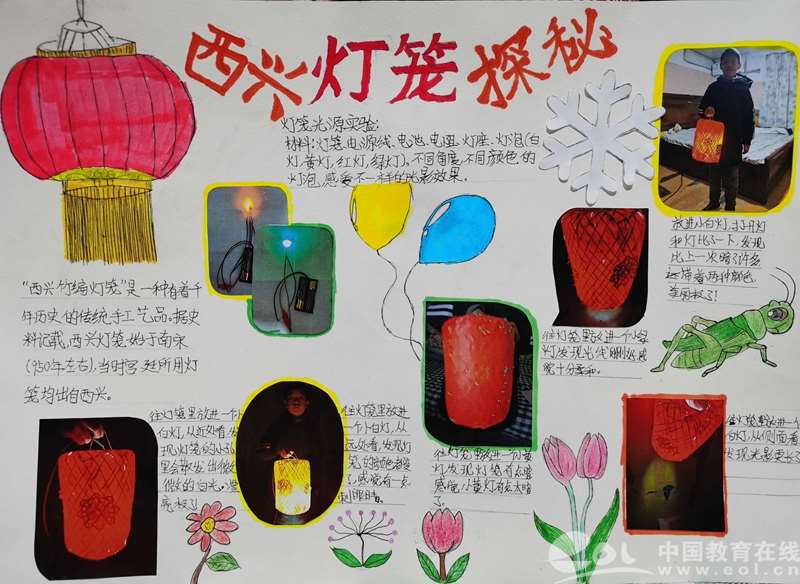 西兴灯笼探秘
灯笼光源实验:
材料:灯笼、电源线、电池、电阻、灯座、灯泡(白
灯、黄灯、红灯、绿灯)、不同角度、不同颜色的
灯泡,感受不一样的光影效果。
放进小白灯,打开灯
和灯比了一下,发现
比上一次暗了许多
"西兴竹编灯笼"是一种有着千
年历史的传统手工艺品。据史
料记载,西兴灯笼始于南宋
当时宫廷所用灯
笼均出自西兴。
往灯笼里放进一个小绿
灯发现光线刚好,感
觉十分柔和。
往灯笼里放进一个小
白灯,从近处看,发
现灯笼的小孔
里会散发出微
微的白光,
亮极了!
往灯笼里放进
一个小白灯,从
远处看,发现灯
笼的颜色
了,感觉有一点
刺眼睛。
往灯笼里放进一个小黄
灯发现灯笼有点
感觉小黄灯有点太暗
了。
往灯笼里放进一个
白灯,从侧面看
发现光影变长了
中国教育在线
www.eol.cn
eol